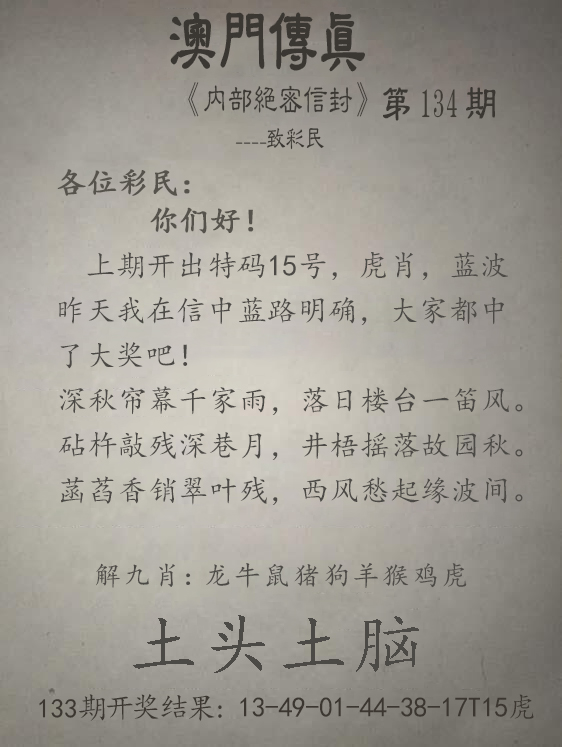 澳門傳眞
《内部絕密信封》第134期
----致彩民
各位彩民：
你们好！
上期开出特码15号，虎肖，蓝波
昨天我在信中蓝路明确，大家都中
了大奖吧！
深秋帘幕千家雨，落日楼台一笛风。
砧杵敲残深巷月，井梧摇落故园秋。
菡萏香销翠叶残，西风愁起缘波间。
解九肖：龙牛鼠猪狗羊猴鸡虎
土头土脑
133期开奖结果：13-49-01-44-38-17T15虎